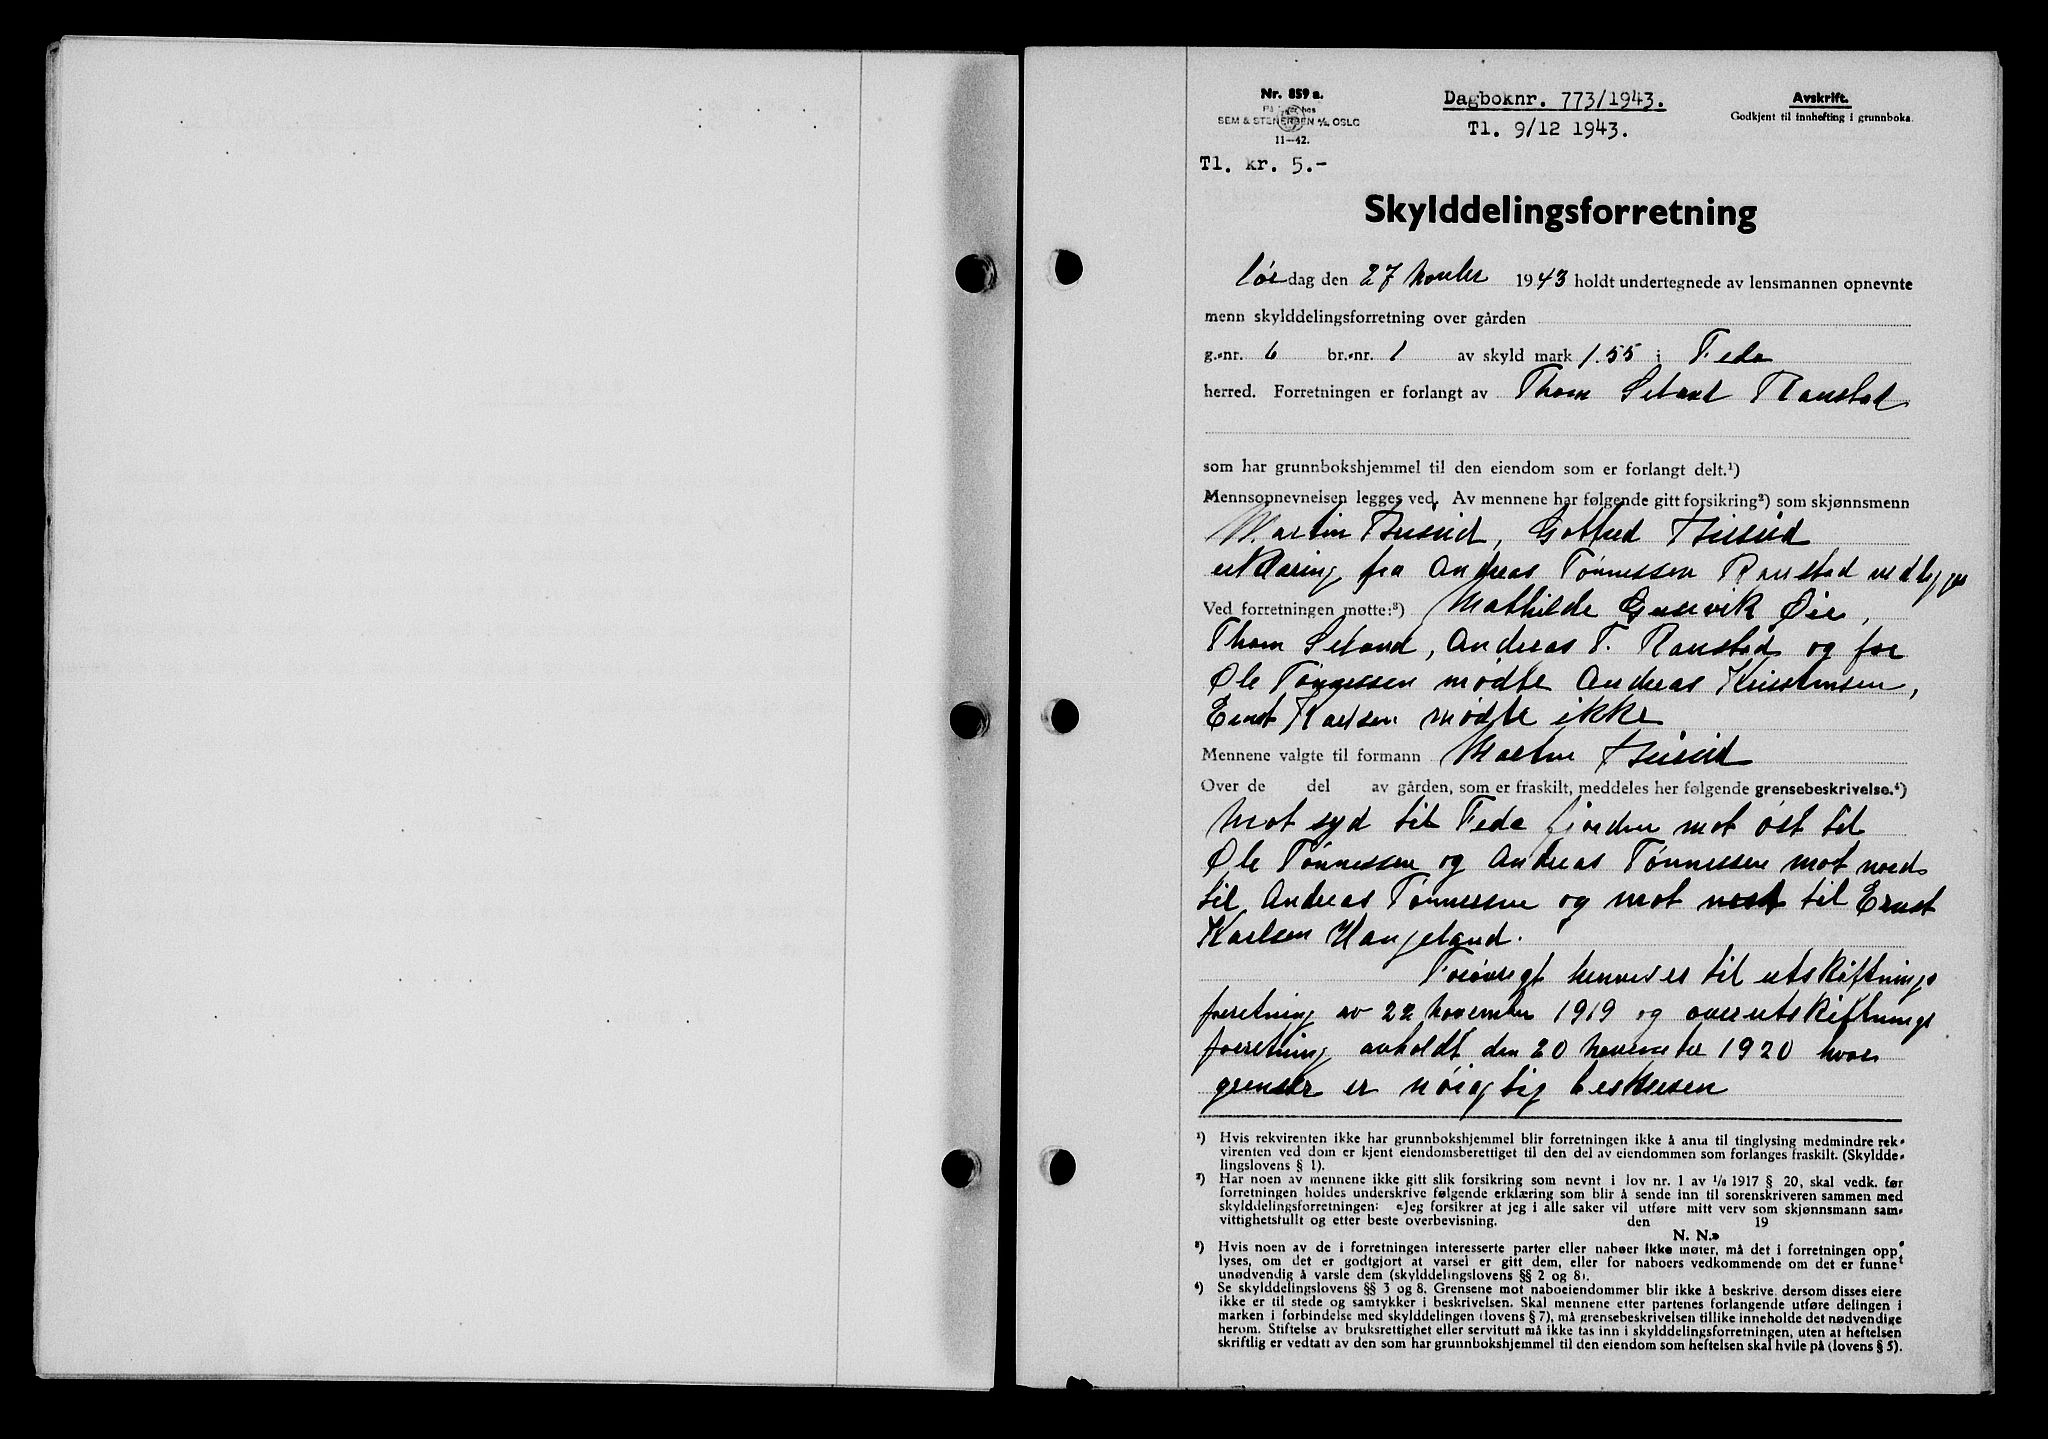 Nr. 859 a.
På lager hos
SEM & STENERSEN A/S, OSLO
11—42.
Dagboknr. 773/1943.
Tl. 9/12 1943.
Avskrift.
Godkjent til innhefting i grunnboka.
Tl. kr. 5.-
Skylddelingsforretning
lør dag den 27 novbr 1943 holdt undertegnede av lensmannen opnevnte
menn skylddelingsforretning over gården
g.-nr. 6 br.-nr. 1 av skyld mark 1.55 i Feda
herred. Forretningen er forlangt av Thom Seland Ranstad
som har grunnbokshjemmel til den eiendom som er forlangt delt.¹)
Mennsopnevnelsen legges ved. Av mennene har følgende gitt forsikring²) som skjønnsmenn
Martin Husvid, Gotfred Husvid
erklæring fra Andreas Tønnessen Ranstad vedlegges
Ved forretningen møtte:³) Mathilde Gusevik Øie,
Thom Seland, Andreas T. Ranstad og for
Ole Tønnessen mødte Andreas Kristensen,
Ernst Karlsen mødte ikke
Mennene valgte til formann Martin Husvid
Over de del av gården, som er fraskilt, meddeles her følgende grensebeskrivelse.⁴)
Mot syd til Feda fjorden mot øst til
Ole Tønnessen og Andreas Tønnessen mot nord
til Andreas Tønnessen og mot vest til Ernst
Karlsen Haugeland.
Forøvrigt henvises til utskiftnings
forretning av 22 november 1919 og overutskiftnings
forretning avholdt den 20 november 1920 hvor
grenser er nøiagtig beskreven
¹) Hvis rekvirenten ikke har grunnbokshjemmel blir forretningen ikke å anta til tinglysing medmindre rek-
virenten ved dom er kjent eiendomsberettiget til den del av eiendommen som forlanges fraskilt. (Skyldde-
lingslovens § 1).
²) Har noen av mennene ikke gitt slik forsikring som nevnt i lov nr. 1 av 1/8 1917 § 20, skal vedk. før
forretningen holdes underskrive følgende erklæring som blir å sende inn til sorenskriveren sammen med
skylddelingsforretningen: «Jeg forsikrer at jeg i alle saker vil utføre mitt verv som skjønnsmann sam-
vittighetsfullt og etter beste overbevisning. den 19
N. N.»
³) Hvis noen av de i forretningen interesserte parter eller naboer ikke møter, må det i forretningen opp
lyses, om det er godtgjort at varsel er gitt dem, eller for naboers vedkommende om det er funnet
unødvendig å varsle dem (skylddelingslovens §§ 2 og 8).
⁴) Se skylddelingslovens §§ 3 og 8. Grensene mot naboeiendommer blir ikke å beskrive, dersom disses eiere
ikke er til stede og samtykker i beskrivelsen. Skal mennene etter partenes forlangende utføre delingen i
marken i forbindelse med skylddelingen (lovens § 7), må grensebeskrivelsen tillike inneholde det nødvendige
herom. Stiftelse av bruksrettighet eller servitutt må ikke tas inn i skylddelingsforretningen, uten at heftelsen
skriftlig er vedtatt av den som har grunnbokshjemmel til den eiendom som heftelsen skal hvile på (lovens § 5).